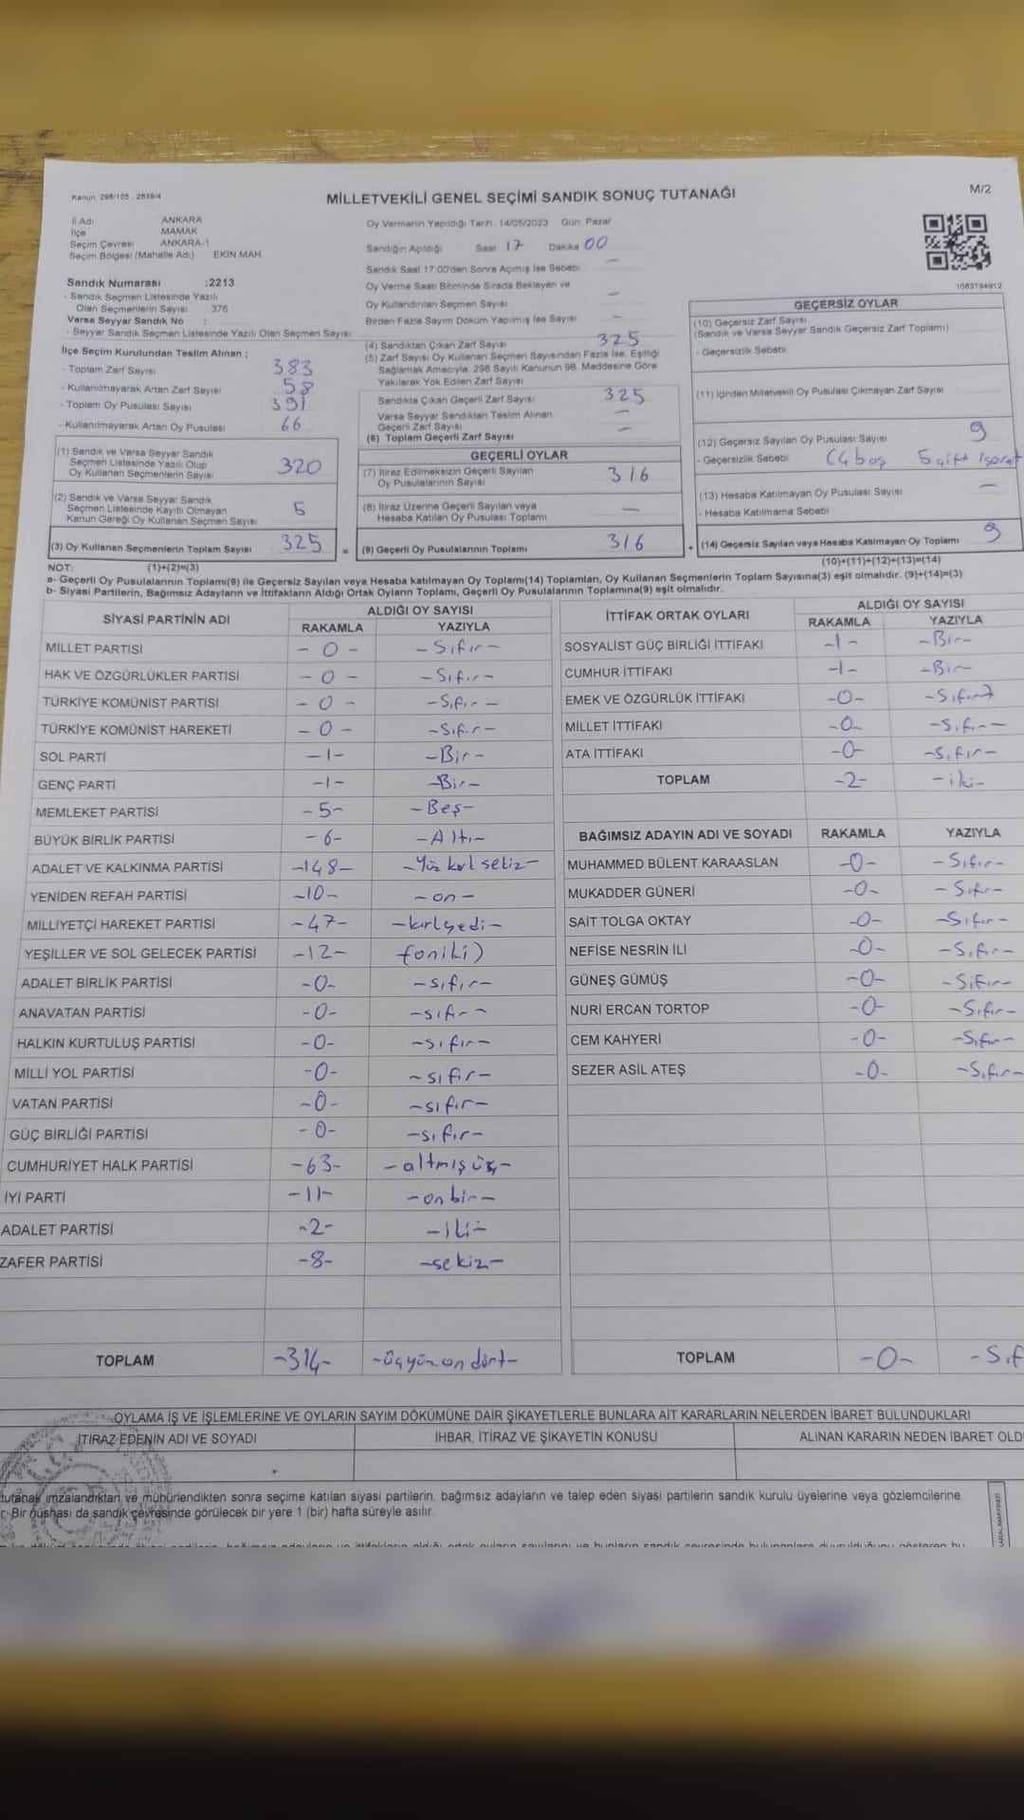 Kanun: 298/105 - 2839/4
MİLLETVEKİLİ GENEL SEÇİMİ SANDIK SONUÇ TUTANAĞI
M/2
İl Adı ANKARA
İlçe MAMAK
Seçim Çevresi ANKARA-1
Seçim Bölgesi (Mahalle Adı) EKİN MAH.
Oy Vermenin Yapıldığı Tarih: 14/05/2023 Gün: Pazar
Sandığın Açıldığı Saat 17 Dakika 00
Sandık Saat 17.00'den Sonra Açılmış İse Sebebi —
Oy Verme Saati Bitiminde Sırada Bekleyen ve
Oy Kullandırılan Seçmen Sayısı —
Birden Fazla Sayım Döküm Yapılmış İse Sayısı —
Sandık Numarası :2213
- Sandık Seçmen Listesinde Yazılı
Olan Seçmenlerin Sayısı 376
Varsa Seyyar Sandık No :
- Seyyar Sandık Seçmen Listesinde Yazılı Olan Seçmen Sayısı:
İlçe Seçim Kurulundan Teslim Alınan ;
- Toplam Zarf Sayısı 383
- Kullanılmayarak Artan Zarf Sayısı 58
- Toplam Oy Pusulası Sayısı 391
- Kullanılmayarak Artan Oy Pusulası 66
(1) Sandık ve Varsa Seyyar Sandık
Seçmen Listesinde Yazılı Olup
Oy Kullanan Seçmenlerin Sayısı 320
(2) Sandık ve Varsa Seyyar Sandık
Seçmen Listesinde Kayıtlı Olmayan
Kanun Gereği Oy Kullanan Seçmen Sayısı 5
(3) Oy Kullanan Seçmenlerin Toplam Sayısı 325 =
(4) Sandıktan Çıkan Zarf Sayısı 325
(5) Zarf Sayısı Oy Kullanan Seçmen Sayısından Fazla İse, Eşitliği
Sağlamak Amacıyla, 298 Sayılı Kanunun 98. Maddesine Göre
Yakılarak Yok Edilen Zarf Sayısı
Sandıkta Çıkan Geçerli Zarf Sayısı 325
Varsa Seyyar Sandıktan Teslim Alınan —
Geçerli Zarf Sayısı
(6) Toplam Geçerli Zarf Sayısı —
GEÇERLİ OYLAR
(7) İtiraz Edilmeksizin Geçerli Sayılan
Oy Pusulalarının Sayısı 316
(8) İtiraz Üzerine Geçerli Sayılan veya
Hesaba Katılan Oy Pusulası Toplamı —
(9) Geçerli Oy Pusulalarının Toplamı 316 +
1083794912
GEÇERSİZ OYLAR
(10) Geçersiz Zarf Sayısı
(Sandık ve Varsa Seyyar Sandık Geçersiz Zarf Toplamı)
- Geçersizlik Sebebi
(11) İçinden Milletvekili Oy Pusulası Çıkmayan Zarf Sayısı
(12) Geçersiz Sayılan Oy Pusulası Sayısı 9
- Geçersizlik Sebebi (4 boş 5 çift işaret
(13) Hesaba Katılmayan Oy Pusulası Sayısı —
- Hesaba Katılmama Sebebi
(14) Geçersiz Sayılan veya Hesaba Katılmayan Oy Toplamı 9
NOT: (1)+(2)=(3) (10)+(11)+(12)+(13)=(14)
a- Geçerli Oy Pusulalarının Toplamı(9) ile Geçersiz Sayılan veya Hesaba katılmayan Oy Toplamı(14) Toplamları, Oy Kullanan Seçmenlerin Toplam Sayısına(3) eşit olmalıdır. (9)+(14)=(3)
b- Siyasi Partilerin, Bağımsız Adayların ve İttifakların Aldığı Ortak Oyların Toplamı, Geçerli Oy Pusulalarının Toplamına(9) eşit olmalıdır.
SİYASİ PARTİNİN ADI ALDIĞI OY SAYISI
RAKAMLA YAZIYLA
MİLLET PARTİSİ - 0 - - Sıfır -
HAK VE ÖZGÜRLÜKLER PARTİSİ - 0 - - Sıfır -
TÜRKİYE KOMÜNİST PARTİSİ - 0 - - Sıfır -
TÜRKİYE KOMÜNİST HAREKETİ - 0 - - Sıfır -
SOL PARTİ - 1 - - Bir -
GENÇ PARTİ - 1 - - Bir -
MEMLEKET PARTİSİ - 5 - - Beş -
BÜYÜK BİRLİK PARTİSİ - 6 - - Altı -
ADALET VE KALKINMA PARTİSİ - 148 - - Yüz kırk sekiz -
YENİDEN REFAH PARTİSİ - 10 - - on -
MİLLİYETÇİ HAREKET PARTİSİ - 47 - - kırkyedi -
YEŞİLLER VE SOL GELECEK PARTİSİ - 12 - (oniki)
ADALET BİRLİK PARTİSİ - 0 - - sıfır -
ANAVATAN PARTİSİ - 0 - - sıfır -
HALKIN KURTULUŞ PARTİSİ - 0 - - sıfır -
MİLLİ YOL PARTİSİ - 0 - - sıfır -
VATAN PARTİSİ - 0 - - sıfır -
GÜÇ BİRLİĞİ PARTİSİ - 0 - - sıfır -
CUMHURİYET HALK PARTİSİ - 63 - - altmış üç -
İYİ PARTİ - 11 - - onbir -
ADALET PARTİSİ - 2 - - iki -
ZAFER PARTİSİ - 8 - - sekiz -
TOPLAM - 314 - - üçyüz on dört -
İTTİFAK ORTAK OYLARI ALDIĞI OY SAYISI
RAKAMLA YAZIYLA
SOSYALİST GÜÇ BİRLİĞİ İTTİFAKI - 1 - - Bir -
CUMHUR İTTİFAKI - 1 - - Bir -
EMEK VE ÖZGÜRLÜK İTTİFAKI - 0 - - Sıfır -
MİLLET İTTİFAKI - 0 - - Sıfır -
ATA İTTİFAKI - 0 - - Sıfır -
TOPLAM - 2 - - iki -
BAĞIMSIZ ADAYIN ADI VE SOYADI RAKAMLA YAZIYLA
MUHAMMED BÜLENT KARAASLAN - 0 - - Sıfır -
MUKADDER GÜNERİ - 0 - - Sıfır -
SAİT TOLGA OKTAY - 0 - - Sıfır -
NEFİSE NESRİN İLİ - 0 - - Sıfır -
GÜNEŞ GÜMÜŞ - 0 - - Sıfır -
NURİ ERCAN TORTOP - 0 - - Sıfır -
CEM KAHYERİ - 0 - - Sıfır -
SEZER ASİL ATEŞ - 0 - - Sıfır -
TOPLAM - 0 - - Sıf
OYLAMA İŞ VE İŞLEMLERİNE VE OYLARIN SAYIM DÖKÜMÜNE DAİR ŞİKAYETLERLE BUNLARA AİT KARARLARIN NELERDEN İBARET BULUNDUKLARI
İTİRAZ EDENİN ADI VE SOYADI İHBAR, İTİRAZ VE ŞİKAYETİN KONUSU ALINAN KARARIN NEDEN İBARET OLD
tutanak imzalandıktan ve mühürlendikten sonra seçime katılan siyasi partilerin, bağımsız adayların ve talep eden siyasi partilerin sandık kurulu üyelerine veya gözlemcilerine
Bir nüshası da sandık çevresinde görülecek bir yere 1 (bir) hafta süreyle asılır.